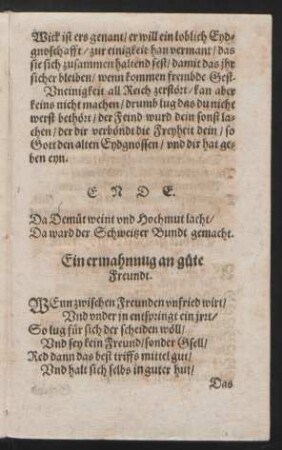 Wick ist ers genant / er will ein loblich Eyd-
gnoschafft / zur einigkeit han vermant / das
sie sich zusammen haltend fest / damit das jhr
sicher bleiben / wenn kommen frembde Gest-
Vneinigkeit all Reich zerstört / kan aber
keins nicht machen / drumb lug das du nicht
werst bethört / der Feind wurd dein sonst la-
chen / der dir verböndt die Freyheit dein / so
Gott den alten Eydgnossen / vnd dir hat ge-
ben eyn.
ENDE.
Da Demüt weint vnd Hochmut lacht /
Da ward der Schweitzer Bundt gemacht.
Ein ermahnung an güte
Freundt.
WEnn zwischen Freunden vnfried wirt /
Vnd vnder jn entspringt ein jrrt /
So lug für sich der scheiden wöll /
Vnd sey kein Freund / sonder Gsell /
Red dann das best triffs mittel gut /
Vnd halt sich selbs in guter hut /
Das